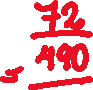 72
490
5